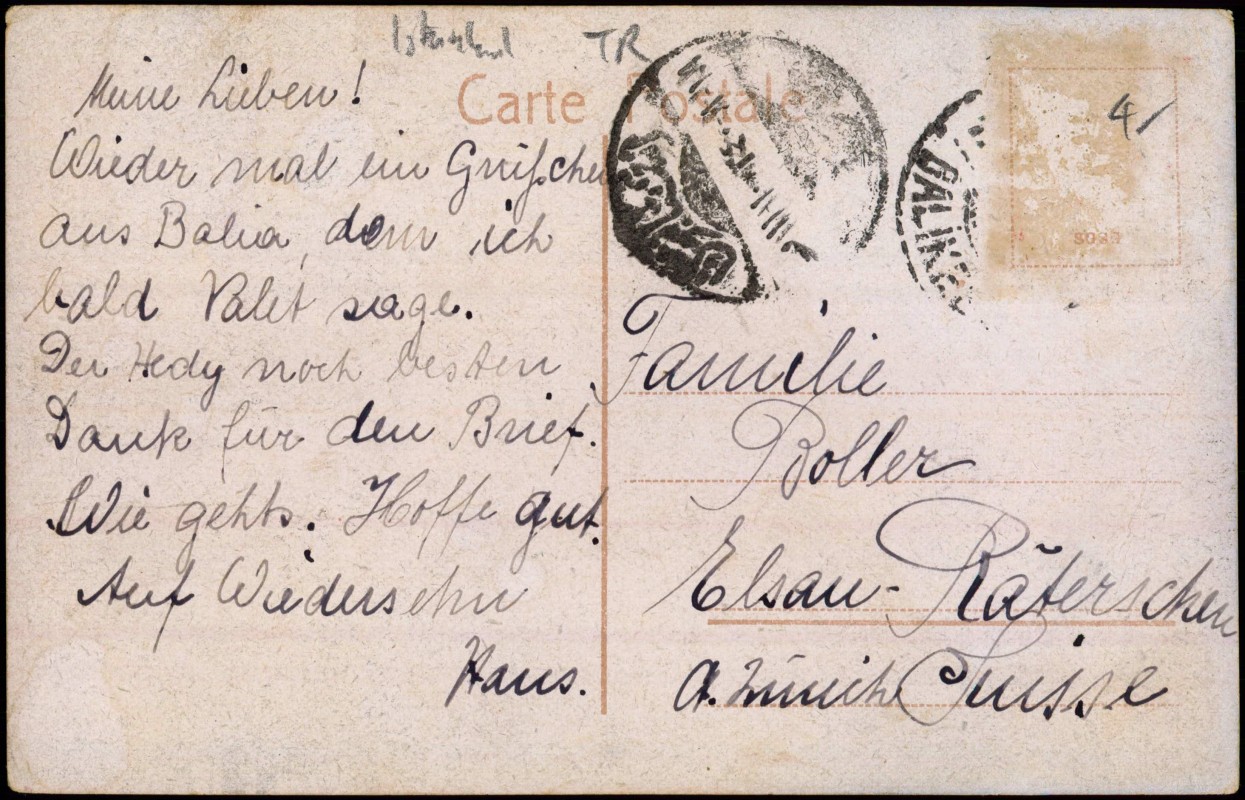 Istanbul TR
Carte Postale
4/
BALIKE
Meine Lieben!
Wieder mal ein Grüßchen
aus Balia, dem ich
bald Valet sage.
Der Hedy noch besten
Dank für den Brief.
Wie gehts. Hoffe gut.
Auf Wiedersehn
Hans.
Familie
Boller
Elsau-Räterschen
Ct. Zürich Suisse